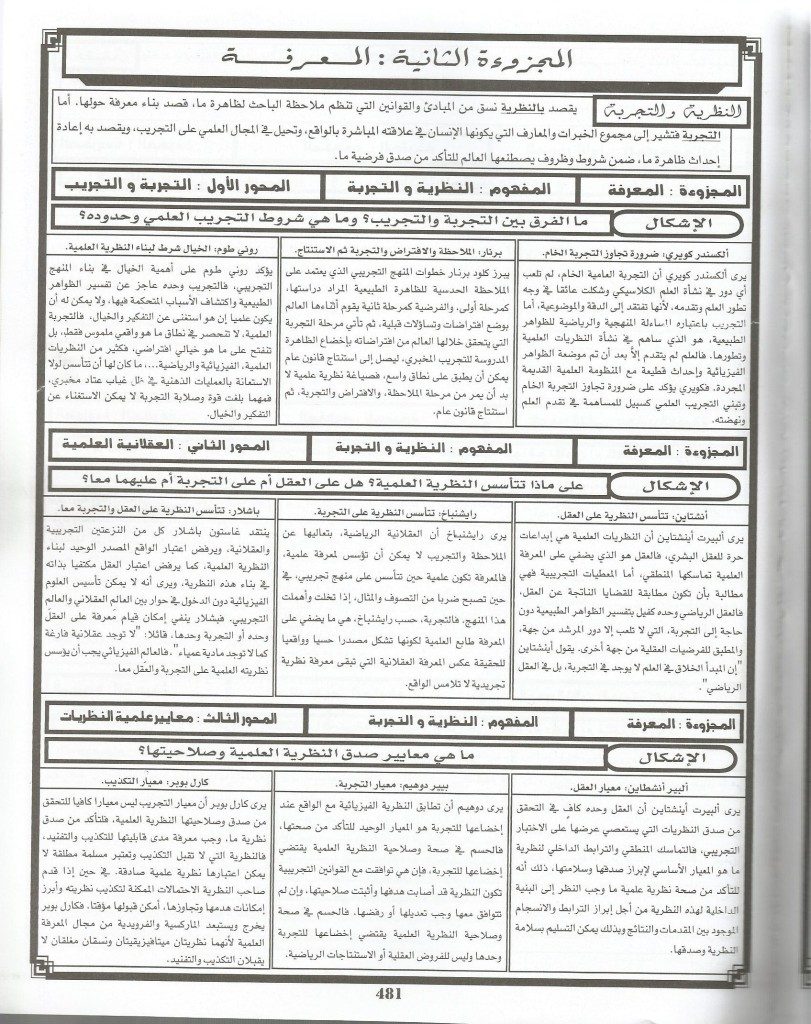 المجزوءة الثانية : المعرفة
النظرية والتجربة
يقصد بالنظرية نسق من المبادئ والقوانين التي تنظم ملاحظة الباحث لظاهرة ما، قصد بناء معرفة حولها. أما
التجربة فتشير إلى مجموع الخبرات والمعارف التي يكونها الإنسان في علاقته المباشرة بالواقع، وتحيل في المجال العلمي على التجريب، ويقصد به إعادة
إحداث ظاهرة ما، ضمن شروط وظروف يصطنعها العالم للتأكد من صدق فرضية ما.
المجزوءة : المعرفة
المفهوم : النظرية و التجربة
المحور الأول : التجربة و التجريب
الإشكال
ما الفرق بين التجربة والتجريب؟ وما هي شروط التجريب العلمي وحدوده؟
ألكسندر كويري: ضرورة تجاوز التجربة الخام.
يرى ألكسندر كويري أن التجربة العامية الخام، لم تلعب
أي دور في نشأة العلم الكلاسيكي وشكلت عائقا في وجه
تطور العلم وتقدمه، لأنها تفتقد إلى الدقة والموضوعية، أما
التجريب باعتباره المساءلة المنهجية والرياضية للظواهر
الطبيعية، هو الذي ساهم في نشأة النظريات العلمية
وتطورها. فالعلم لم يتقدم إلا بعد أن تم موضعة الظواهر
الفيزيائية وإحداث قطيعة مع المنظومة العلمية القديمة
المجردة. فكويري يؤكد على ضرورة تجاوز التجربة الخام
وتبني التجريب العلمي كسبيل للمساهمة في تقدم العلم
ونهضته.
برنار: الملاحظة والافتراض والتجربة ثم الاستنتاج.
يبرز كلود برنار خطوات المنهج التجريبي الذي يعتمد على
الملاحظة الحدسية للظاهرة الطبيعية المراد دراستها،
كمرحلة أولى، والفرضية كمرحلة ثانية يقوم أثناءها العالم
بوضع افتراضات وتساؤلات قبلية، ثم تأتي مرحلة التجربة
التي يتحقق خلالها العالم من افتراضاته بإخضاع الظاهرة
المدروسة للتجريب المخبري، ليصل إلى استنتاج قانون عام
يمكن أن يطبق على نطاق واسع، فصياغة نظرية علمية لا
بد أن يمر من مرحلة الملاحظة، والافتراض والتجربة، ثم
استنتاج قانون عام.
روني طوم: الخيال شرط لبناء النظرية العلمية.
يؤكد روني طوم على أهمية الخيال في بناء المنهج
التجريبي، فالتجريب وحده عاجز عن تفسير الظواهر
الطبيعية واكتشاف الأسباب المتحكمة فيها، ولا يمكن له أن
يكون علميا إن هو استغنى عن التفكير والخيال. فالتجربة
العلمية، لا تنحصر في نطاق ما هو واقعي ملموس فقط، بل
تنفتح على ما هو خيالي افتراضي، فكثير من النظريات
العلمية، الفيزيائية والرياضية...، ما كان لها أن تتأسس لولا
الاستعانة بالعمليات الذهنية في ظل غياب عتاد مخبري،
فمهما بلغت قوة وصلابة التجربة لا يمكن الاستغناء عن
التفكير والخيال.
المجزوءة : المعرفة
المفهوم : النظرية و التجربة
المحور الثاني : العقلانية العلمية
الإشكال
على ماذا تتأسس النظرية العلمية؟ هل على العقل أم على التجربة أم عليهما معا؟
أنشتاين: تتأسس النظرية على العقل.
يرى ألبيرت أينشتاين أن النظريات العلمية هي إبداعات
حرة للعقل البشري، فالعقل هو الذي يضفي على المعرفة
العلمية تماسكها المنطقي، أما المعطيات التجريبية فهي
مطالبة بأن تكون مطابقة للقضايا الناتجة عن العقل،
فالعقل الرياضي وحده كفيل بتفسير الظواهر الطبيعية دون
حاجة إلى التجربة، التي لا تلعب إلا دور المرشد من جهة،
والمطبق للفرضيات العقلية من جهة أخرى. يقول أينشتاين
"إن المبدأ الخلاق في العلم لا يوجد في التجربة، بل في العقل
الرياضي".
رايشنباخ: تتأسس النظرية على التجربة.
يرى رايشنباخ أن العقلانية الرياضية، بتعاليها عن
الملاحظة والتجريب لا يمكن أن تؤسس لمعرفة علمية،
فالمعرفة تكون علمية حين تتأسس على منهج تجريبي، في
حين تصبح ضربا من التصوف والمثال، إذا تخلت وأهملت
هذا المنهج. فالتجربة، حسب رايشنباخ، هي ما يضفي على
المعرفة طابع العلمية لكونها تشكل مصدرا حسيا وواقعيا
للحقيقة عكس المعرفة العقلانية التي تبقى معرفة نظرية
تجريدية لا تلامس الواقع.
باشلار: تتأسس النظرية على العقل والتجربة معا.
ينتقد غاستون باشلار كل من النزعتين التجريبية
والعقلانية، ويرفض اعتبار الواقع المصدر الوحيد لبناء
النظرية العلمية، كما يرفض اعتبار العقل مكتفيا بذاته
في بناء هذه النظرية، ويرى أنه لا يمكن تأسيس العلوم
الفيزيائية دون الدخول في حوار بين العالم العقلاني والعالم
التجريبي. فبشلار ينفي إمكان قيام معرفة على العقل
وحده أو التجربة وحدها، قائلا: "لا توجد عقلانية فارغة
كما لا توجد مادية عمياء". فالعالم الفيزيائي يجب أن يؤسس
نظريته العلمية على التجربة والعقل معا.
المجزوءة : المعرفة
المفهوم : النظرية و التجربة
المحور الثالث : معايير علمية النظريات
الإشكال
ما هي معايير صدق النظرية العلمية وصلاحيتها؟
ألبير أنشطاين: معيار العقل.
يرى ألبيرت أينشتاين أن العقل وحده كاف في التحقق
من صدق النظريات التي يستعصي عرضها على الاختبار
التجريبي، فالتماسك المنطقي والترابط الداخلي لنظرية
ما هو المعيار الأساسي لإبراز صدقها وسلامتها، ذلك أنه
للتأكد من صحة نظرية علمية ما وجب النظر إلى البنية
الداخلية لهذه النظرية من أجل إبراز الترابط والانسجام
الموجود بين المقدمات والنتائج وبذلك يمكن التسليم بسلامة
النظرية وصدقها.
بيير دوهيم: معيار التجربة.
يرى دوهيم أن تطابق النظرية الفيزيائية مع الواقع عند
إخضاعها للتجربة هو المعيار الوحيد للتأكد من صحتها،
فالحسم في صحة وصلاحية النظرية العلمية يقتضي
إخضاعها للتجربة، فإن هي توافقت مع القوانين التجريبية
تكون النظرية قد أصابت هدفها وأثبتت صلاحيتها، وإن لم
تتوافق معها وجب تعديلها أو رفضها. فالحسم في صحة
وصلاحية النظرية العلمية يقتضي إخضاعها للتجربة
وحدها وليس للفروض العقلية أو الاستنتاجات الرياضية.
كارل بوبر: معيار التكذيب.
يرى كارل بوبر أن معيار التجريب ليس معيارا كافيا للتحقق
من صدق وصلاحيتها النظرية العلمية، فللتأكد من صدق
نظرية ما، وجب معرفة مدى قابليتها للتكذيب والتفنيد،
فالنظرية التي لا تقبل التكذيب وتعتبر مسلمة مطلقة لا
يمكن اعتبارها نظرية علمية صادقة. في حين إذا قدم
صاحب النظرية الاحتمالات الممكنة لتكذيب نظريته وأبرز
إمكانات هدمها وتجاوزها، أمكن قبولها مؤقتا. فكارل بوبر
يخرج ويستبعد الماركسية والفرويدية من مجال المعرفة
العلمية لأنهما نظريتان ميتافيزيقيتان ونسقان مغلقان لا
يقبلان التكذيب والتفنيد.
481